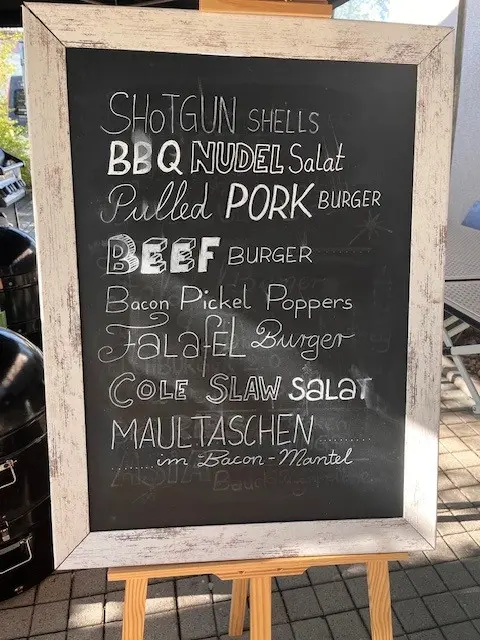 SHOTGUN SHELLS
BBQ NUDEL Salat
Pulled PORK BURGER
BEEF BURGER
Bacon Pickel Poppers
FalafEL Burger
COLE SLAW SALAT
MAULTASCHEN
im Bacon-Mantel